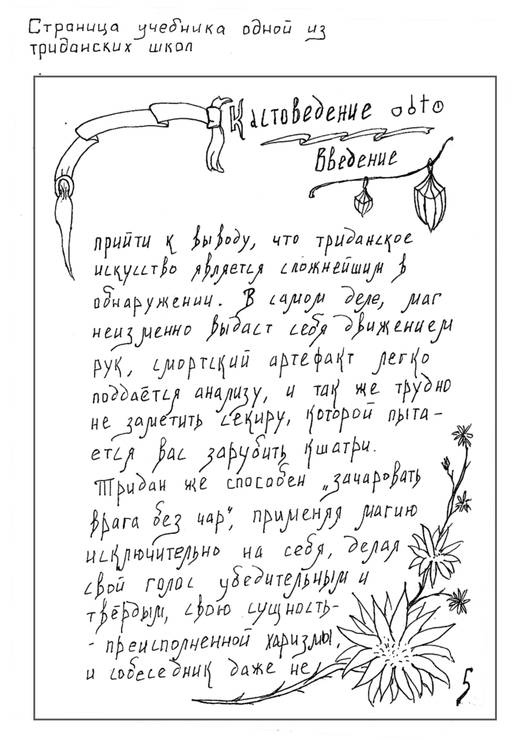 Страница учебника одной из
триданских школ
Кастоведение
Введение
прийти к выводу, что триданское
искусство является сложнейшим в
обнаружении. В самом деле, маг
неизменно выдаст себя движением
рук, смортский артефакт легко
поддаётся анализу, и так же трудно
не заметить секиру, которой пыта-
ется вас зарубить кшатри.
Тридан же способен „зачаровать
врага без чар", применяя магию
исключительно на себя, делая
свой голос убедительным и
твёрдым, свою сущность-
- преисполненной харизмы,
и собеседник даже не
5